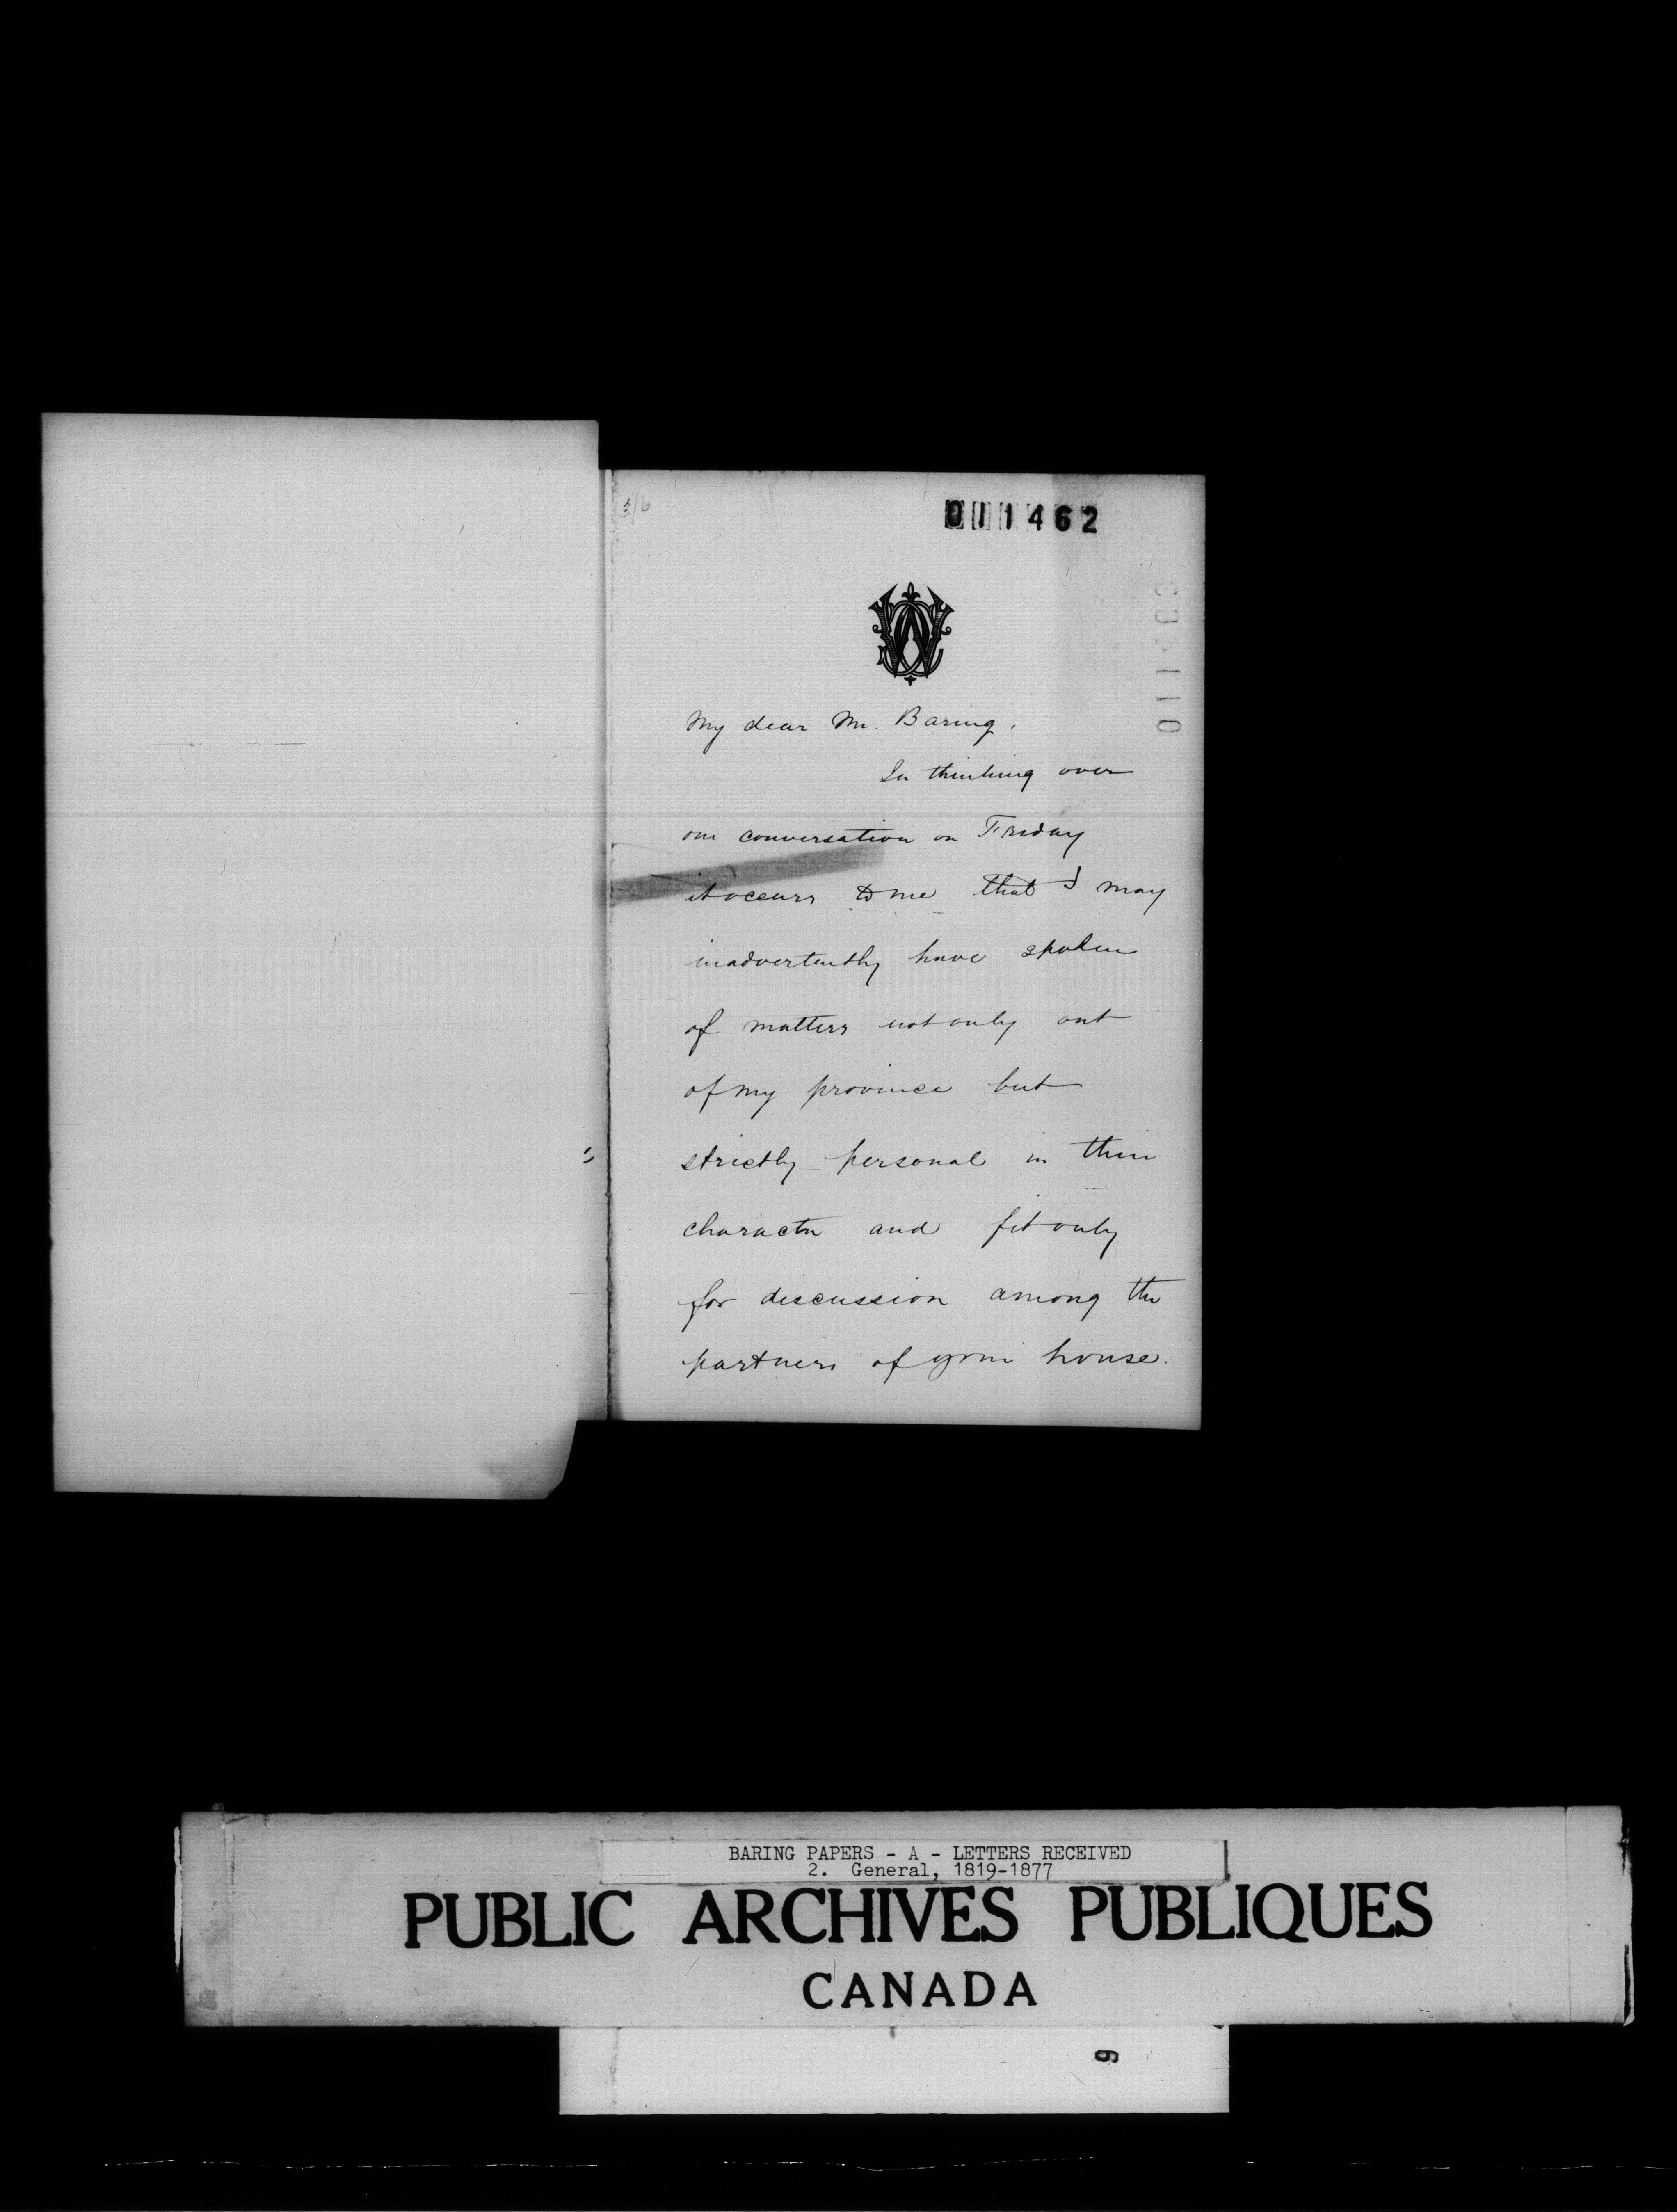 3/6
011462
My dear Mr. Baring,
In thinking over
our conversation on Friday
it occurs to me that I may
inadvertently have spoken
of matters not only out
of my province but
strictly personal in their
character and fit only
for discussion among the
partners of your house.
BARING PAPERS - A - LETTERS RECEIVED
2. General, 1819-1877
PUBLIC ARCHIVES PUBLIQUES
CANADA